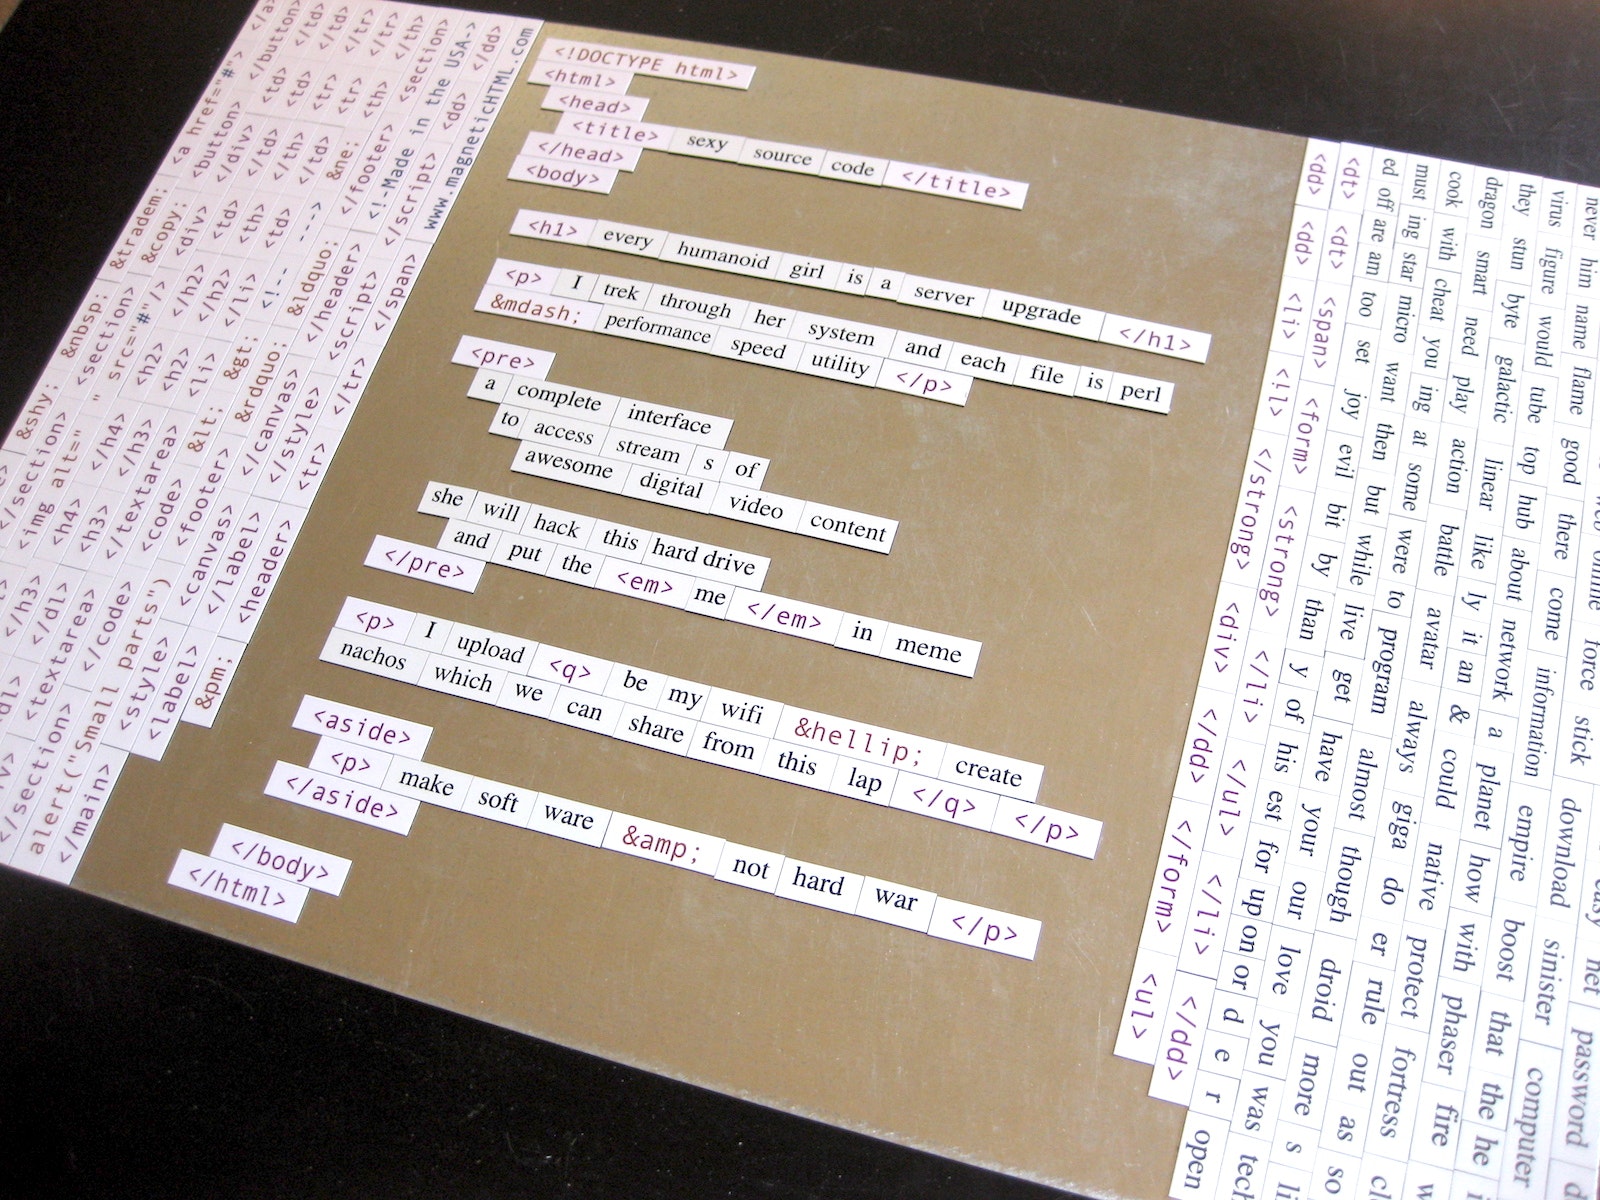 <!DOCTYPE html>
<html>
<head>
<title> sexy source code </title>
</head>
<body>
<h1> every humanoid girl is a server upgrade </h1>
<p> I trek through her system and each file is perl
&mdash; performance speed utility </p>
<pre>
a complete interface
to access stream s of
awesome digital video content
she will hack this hard drive
and put the <em> me </em> in meme
</pre>
<p> I upload <q> be my wifi &hellip; create
nachos which we can share from this lap </q> </p>
<aside>
<p> make soft ware &amp; not hard war </p>
</aside>
</body>
</html>
www.magneticHTML.com
<!-Made in the USA->
<dd> </dd>
</span> </script> <section>
</tr> <script> </header> </footer> <th> </th>
<tr> </style> </canvas> &rdquo; &ldquo; &ne; <tr> </tr>
<header> </label> <canvas> <footer> &lt; &gt; <!-- -->
&pm; <label> <style> alert("Small parts")
</main> </section> <textarea> </code> <code> </textarea>
<img alt=" " src="#"/> <a href="#"> </a>
&shy; &nbsp; &tradem; &copy; <button> </button>
<dd> <dd> <li> <il> </strong> <div> </dd> </form> <ul>
<dt> <dt> <span> <form> <strong> </li> </ul> </li> </dd>
ed off are am too set joy evil bit by than y of his est for up on or d e r open
must ing star micro want then but while live get have your our love you was tech
cook with cheat you ing at some were to program almost though droid more s
dragon smart need play action battle avatar always giga do er rule out as so
they stun byte galactic linear like ly it an & could native protect fortress
virus figure would tube top hub about network a planet how with phaser fire
never him name flame good there come information empire boost that the he
online force stick download sinister computer
net password